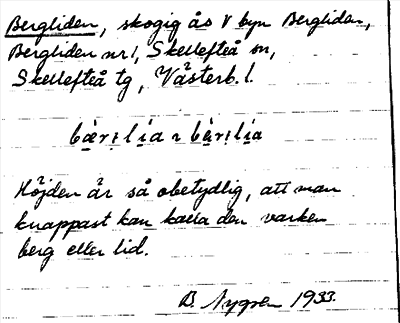 Bergliden, skogig ås V byn Bergliden,
Bergliden nr 1, Skellefteå sn,
Skellefteå tg, Västerb. l.
bær̥ lía ⁊ bær̥lía
Höjden är så obetydlig, att man
knappast kan kalla den varken
berg eller lid.
B. Nygren 1933.